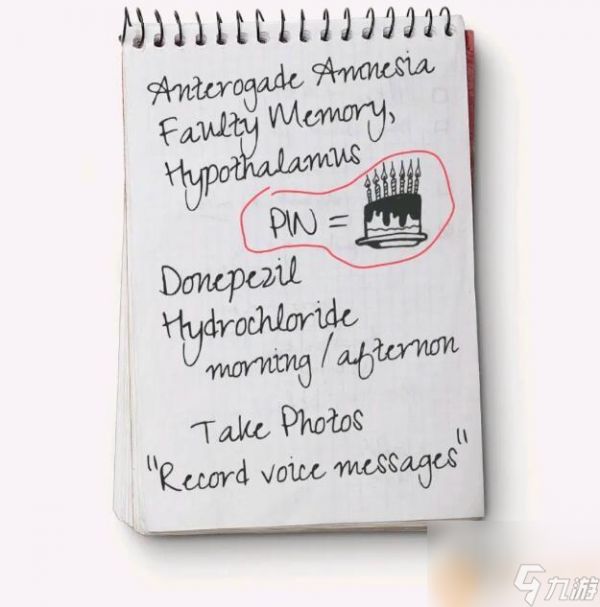 Anterogade Amnesia
Faulty Memory,
Hypothalamus
PIN =
Donepezil
Hydrochloride
morning / afternon
Take Photos
"Record voice messages"
九游